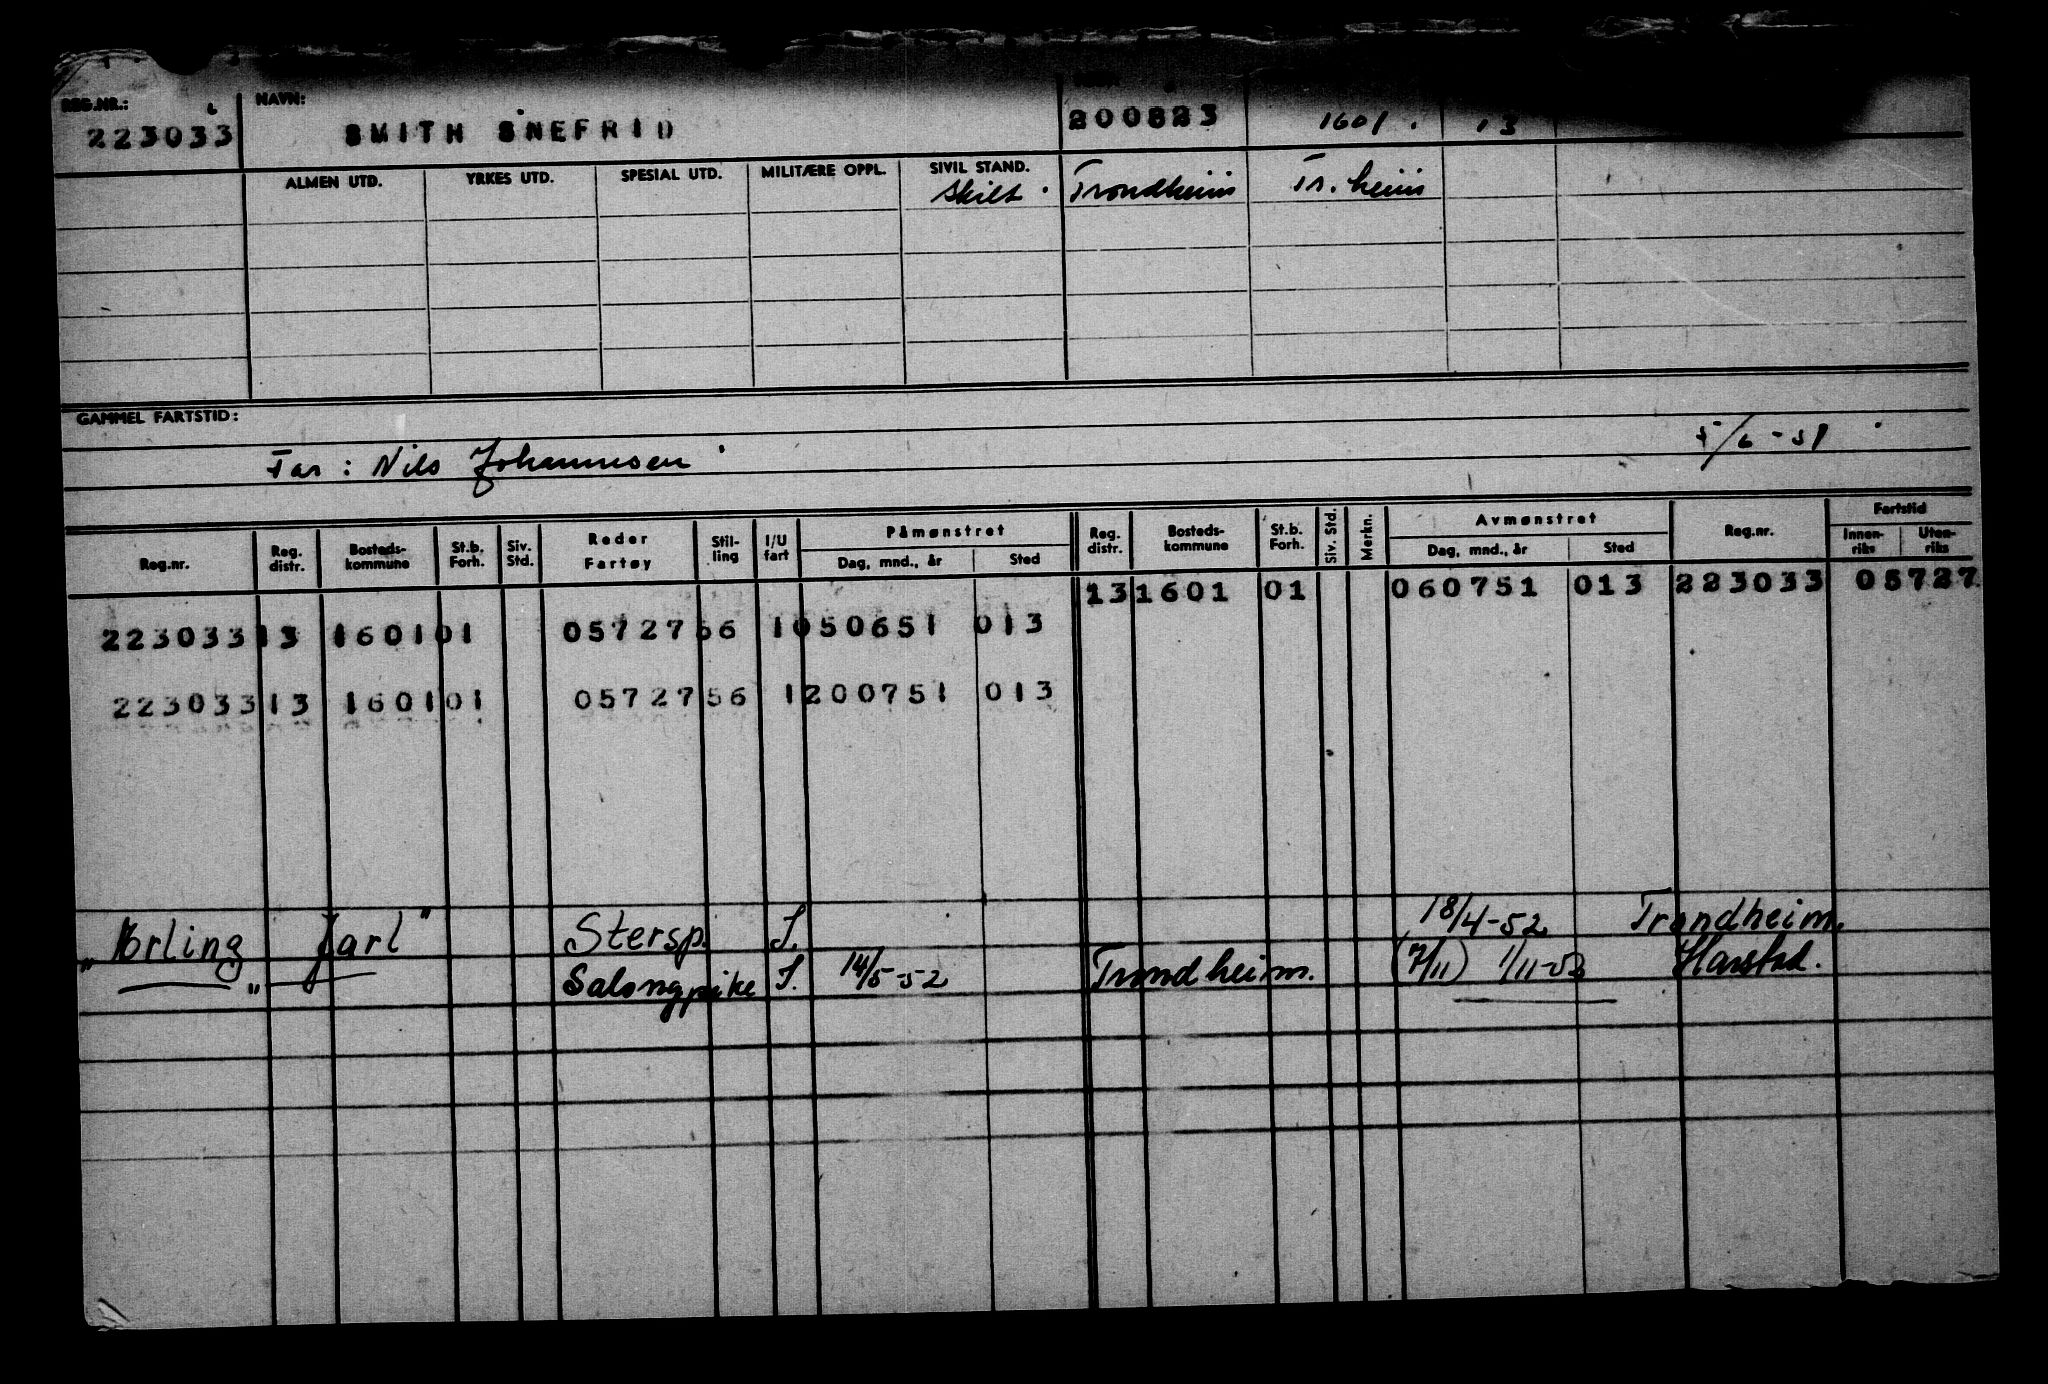 REG.NR.: NAVN:
223033 SMITH SNEFRID 200823 1601. 13
ALMEN UTD. YRKES UTD. SPESIAL UTD. MILITÆRE OPPL. SIVIL STAND.
Skilt. Trondheim Tr.heim
GAMMEL FARTSTID:
Far: Nils Johannesen 5/6-51
Reg.nr. Reg. distr. Bosteds-kommune St.b. Forh. Siv. Std. Reder Fartøy Stil-ling I/U fart Påmønstret Dag, mnd., år Sted Reg. distr. Bosteds-kommune St.b. Forh. Siv. Std. Merkn. Avmønstret Dag, mnd., år Sted Reg.nr. Fartstid Innen-riks Uten-riks
13 1601 01 060751 013 223033 05727
223033 13 1601 01 05727 56 1 050651 013
223033 13 1601 01 05727 56 1 200751 013
"Erling Jarl" Stersp. I. 18/4-52 Trondheim.
" Salongpike I. 14/5-52 Trondheim. (7/11) 1/11-52 Harstad.